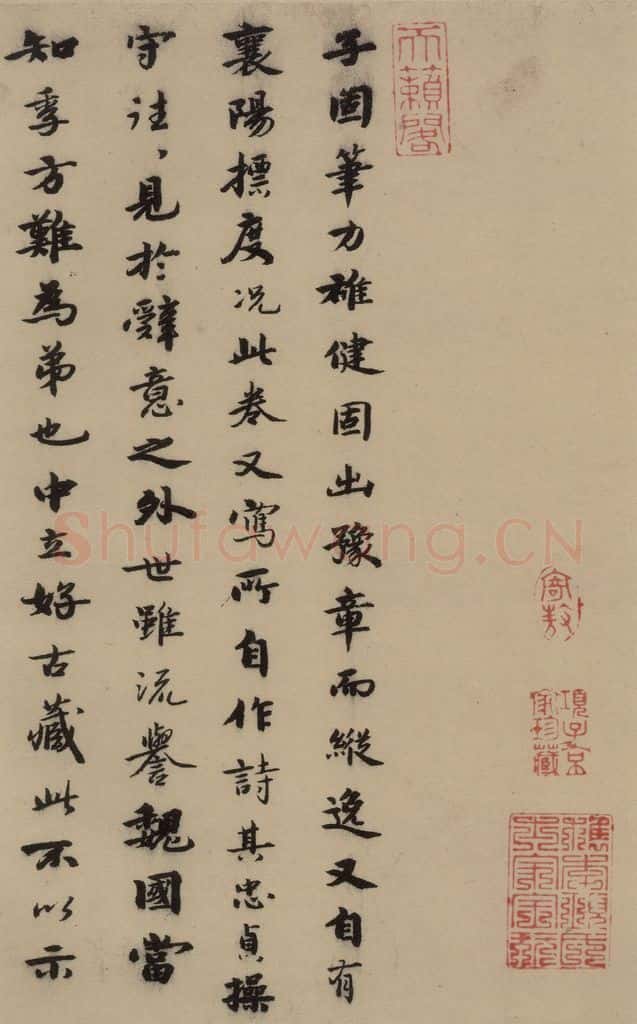 子固筆力雄健固出豫章而縱逸又自有
襄陽標度况此卷又寫所自作詩其忠貞操
守往、見於辭意之外世雖流譽魏國當
知季方難為弟也中立好古藏此不以示
天籟閣
項子京家珍藏
Shufawang.CN